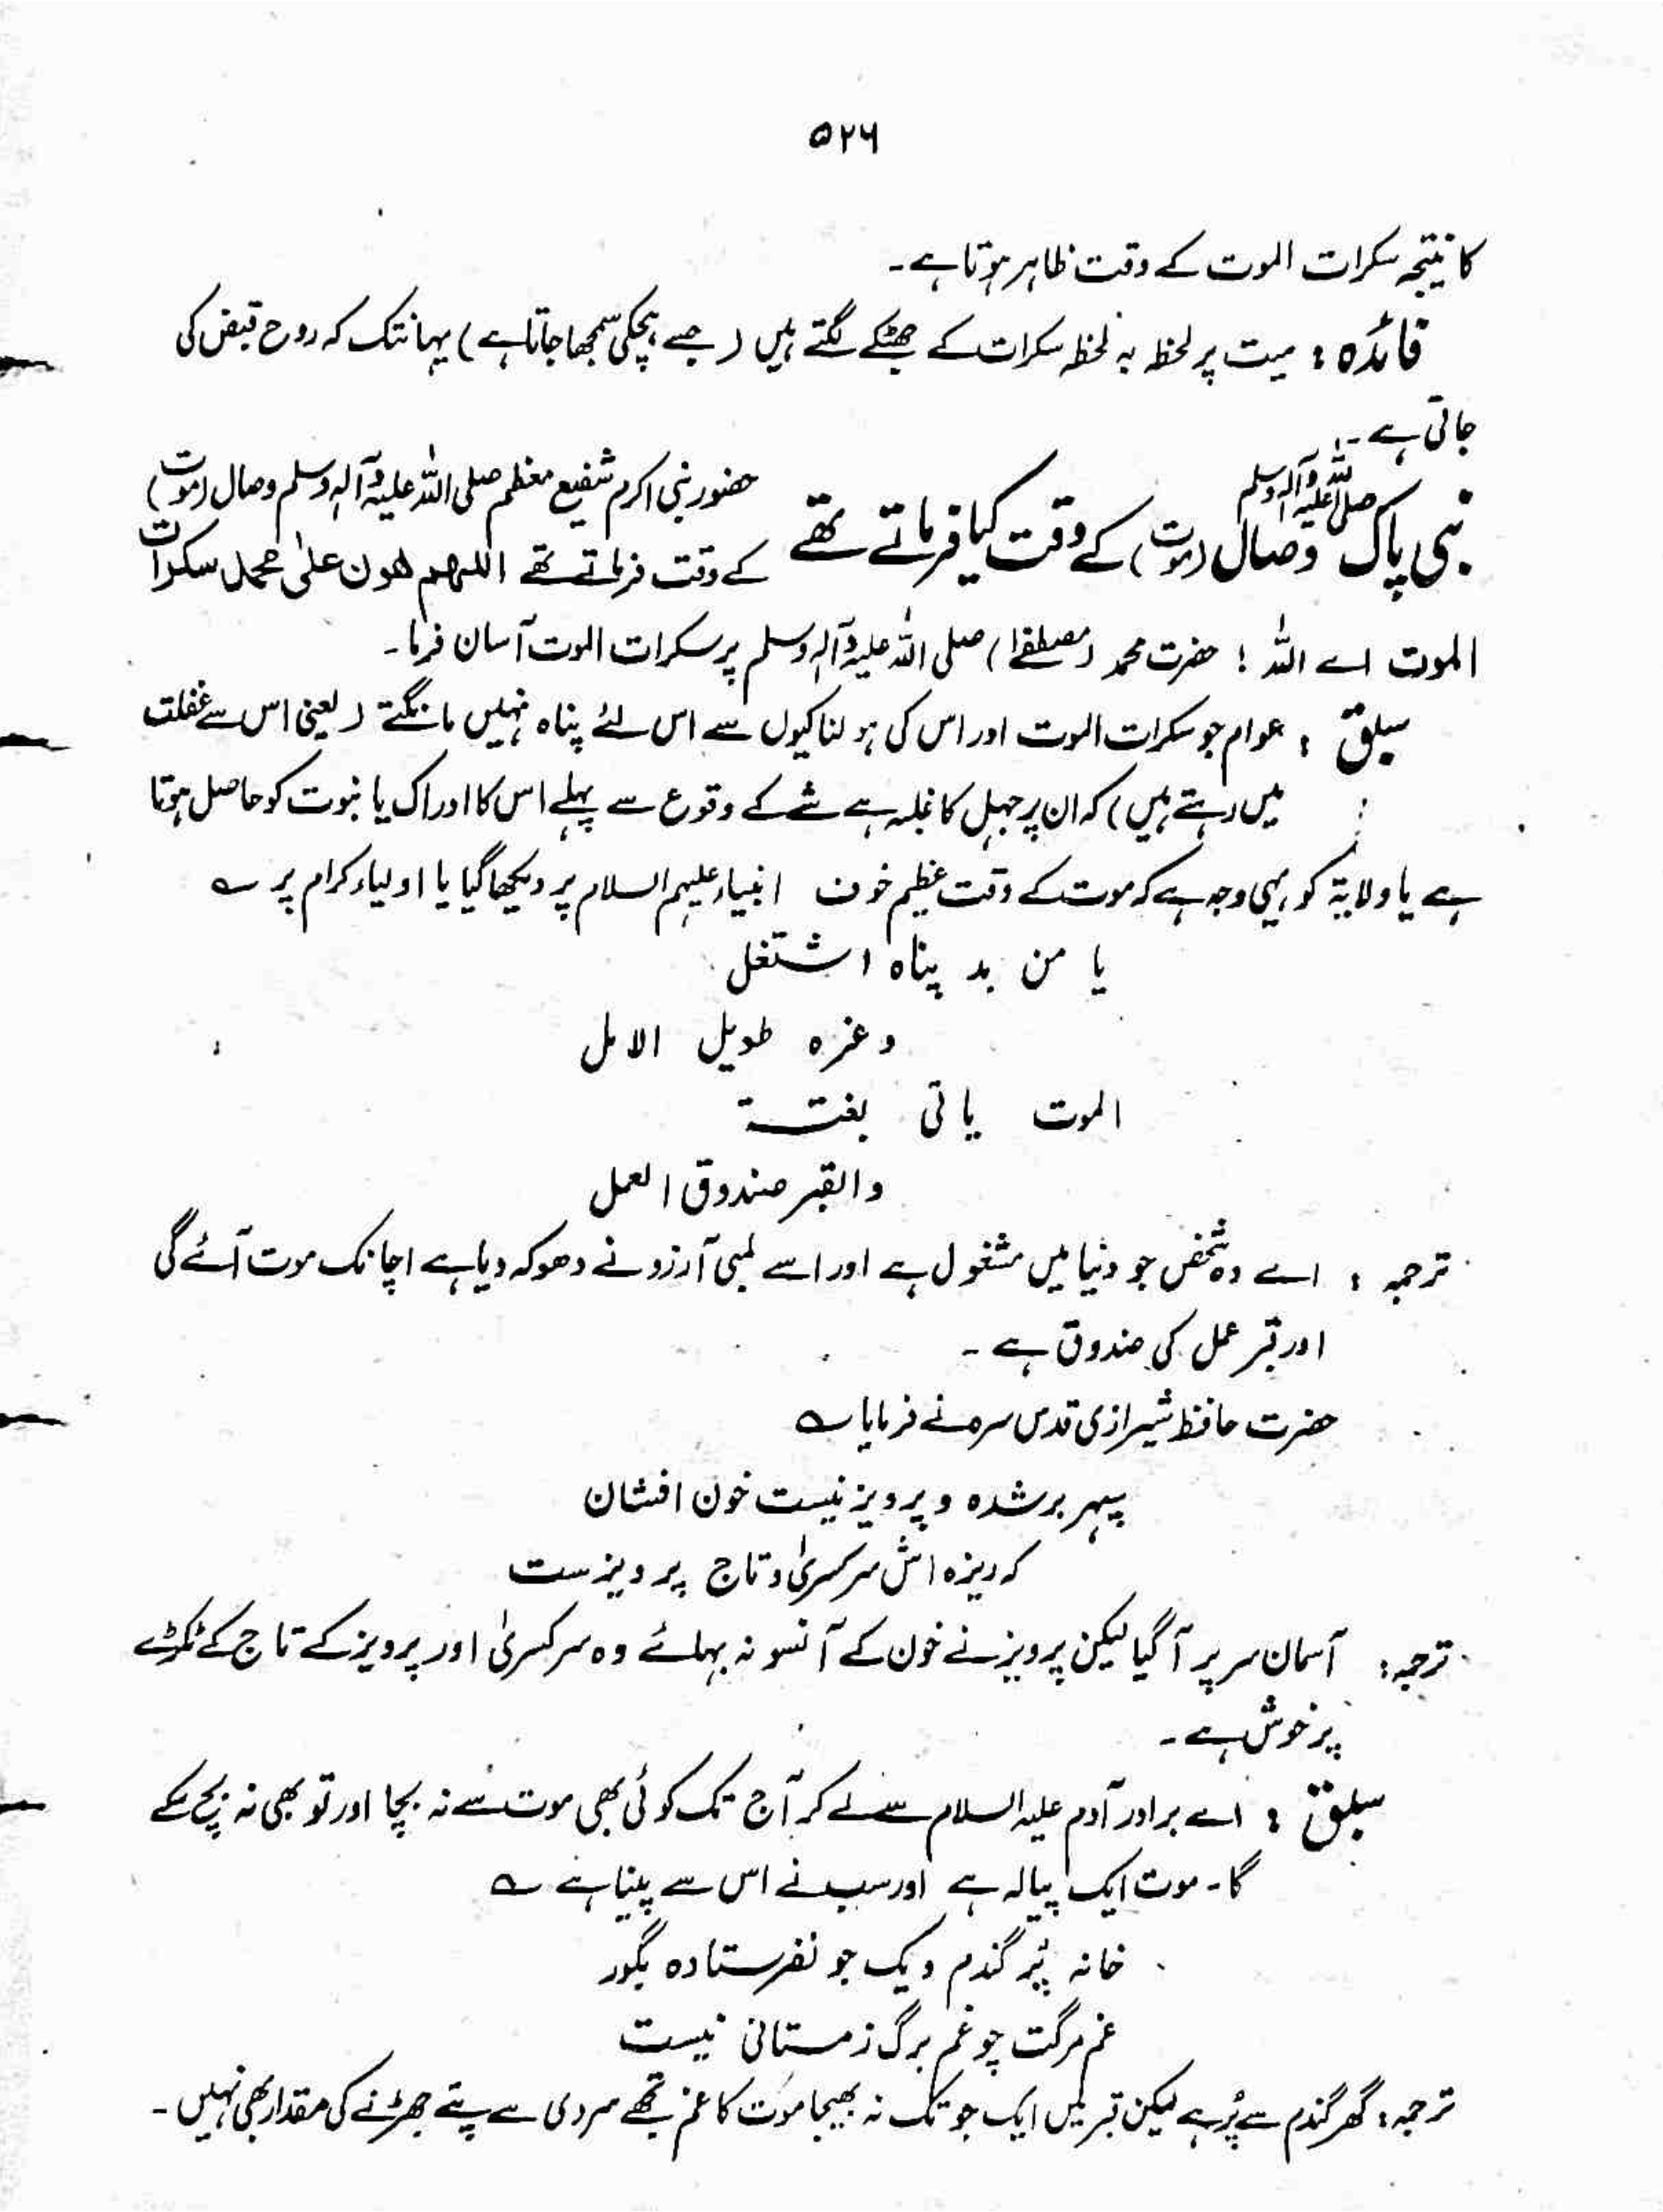 ۵۲۶
کا نیتجہ سکرات الموت کے وقت ظاہر ہوتا ہے۔
فائدہ : میت پر لحظہ بہ لحظہ سکرات کے جھٹکے لگتے ہیں (جسے ہچکی سمجھا جاتا ہے) یہانتک کہ روح قبض کی
جاتی ہے۔
نبی پاک صلی اللہ علیہ وآلہ وسلم وصال (موت) کے وقت کیا فرماتے تھے
حضور نبی اکرم شفیع معظم صلی اللہ علیہ وآلہ وسلم وصال (موت)
کے وقت فرماتے تھے اللھم ھون علیٰ محمد سکرات
الموت اے اللہ ! حضرت محمد (مصطفےٰ) صلی اللہ علیہ وآلہ وسلم پر سکرات الموت آسان فرما۔
سبق : عوام جو سکرات الموت اور اس کی ہولناکیوں سے اس لئے پناہ نہیں مانگتے (یعنی اس سے غفلت
میں رہتے ہیں) کہ ان پر جہل کا غلبہ ہے شے کے وقوع سے پہلے اس کا ادراک یا نبوت کو حاصل ہوتا
ہے یا ولایۃ کو یہی وجہ ہے کہ موت کے وقت عظیم خوف انبیاء علیہم السلام پر دیکھا گیا یا اولیاء کرام پر ؎
یا من بد پناہ اشتغل
وغرہ طویل الامل
الموت یاتی بغتۃ
والقبر صندوق العمل
ترجمہ : اے وہ شخص جو دنیا میں مشغول ہے اور اسے لمبی آرزو نے دھوکہ دیا ہے اچانک موت آئے گی
اور قبر عمل کی صندوق ہے۔
حضرت حافظ شیرازی قدس سرہ نے فرمایا ؎
سپہر برشدہ و پرویز نیست خون افشان
کہ ریزہ اش سر کسریٰ و تاج پرویزست
ترجمہ : آسمان سر پر آگیا لیکن پرویز نے خون کے آنسو نہ بہائے وہ سر کسریٰ اور پرویز کے تاج کے ٹکڑے
پر خوش ہے۔
سبق : اے برادر آدم علیہ السلام سے لے کر آج تک کوئی بھی موت سے نہ بچا اور تو بھی نہ بچ سکے
گا۔ موت ایک پیالہ ہے اور سب نے اس سے پینا ہے ؎
خانہ پُر گندم و یک جو نفرستادہ بگور
غم مرگت چو غم برگ زمستانی نیست
ترجمہ : گھر گندم سے پُر ہے لیکن قبر میں ایک جو تک نہ بھیجا موت کا غم تجھے سردی سے پتے جھڑنے کی مقدار بھی نہیں۔